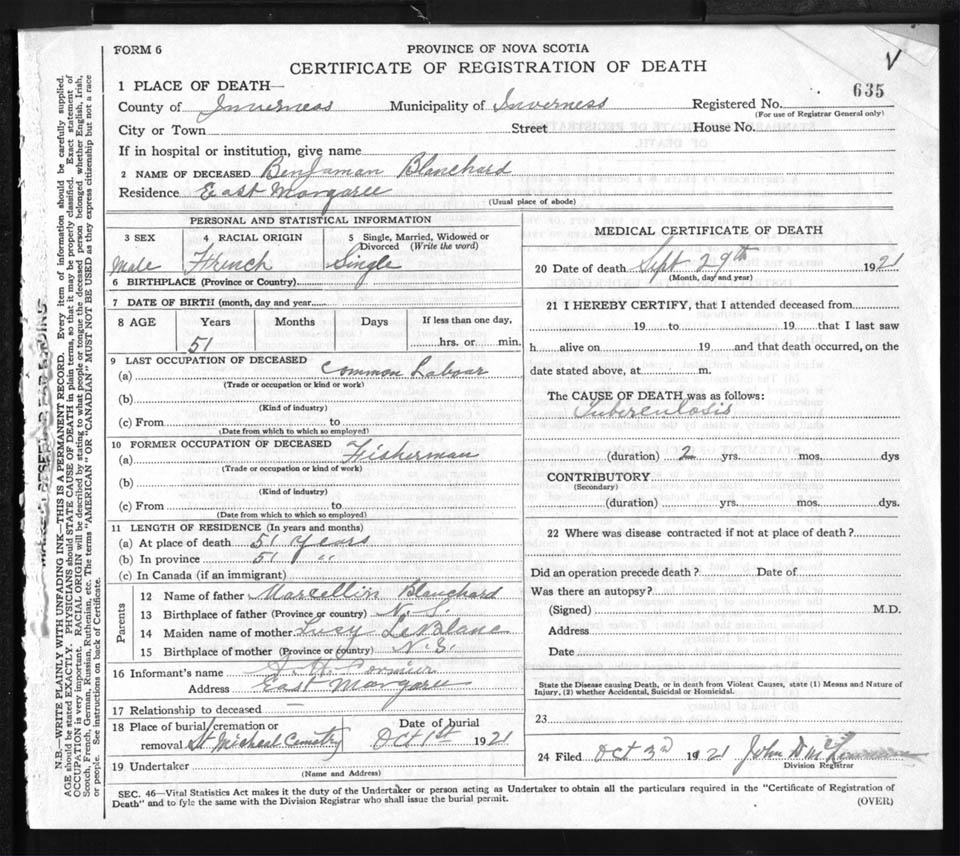 FORM 6
PROVINCE OF NOVA SCOTIA
CERTIFICATE OF REGISTRATION OF DEATH
V
635
1 PLACE OF DEATH—
County of Inverness Municipality of Inverness Registered No.
(For use of Registrar General only)
City or Town Street House No.
If in hospital or institution, give name
2 NAME OF DECEASED Benjaman Blanchard
Residence East Margaree
(Usual place of abode)
PERSONAL AND STATISTICAL INFORMATION
3 SEX 4 RACIAL ORIGIN 5 Single, Married, Widowed or Divorced (Write the word)
Male French Single
6 BIRTHPLACE (Province or Country)
7 DATE OF BIRTH (month, day and year
8 AGE Years Months Days If less than one day,
51 hrs. or min.
9 LAST OCCUPATION OF DECEASED
(a) Common Labour
(Trade or occupation or kind or work)
(b)
(Kind of industry)
(c) From to
(Date from which to which so employed)
10 FORMER OCCUPATION OF DECEASED
(a) Fisherman
(Trade or occupation or kind of work)
(b)
(Kind of industry)
(c) From to
(Date from which to which so employed)
11 LENGTH OF RESIDENCE (In years and months)
(a) At place of death 51 years
(b) In province 51 "
(c) In Canada (if an immigrant)
Parents
12 Name of father Marcellin Blanchard
13 Birthplace of father (Province or country) N. S.
14 Maiden name of mother Lucy LeBlanc
15 Birthplace of mother (Province or country) N. S.
16 Informant's name Cormier
Address East Margaree
17 Relationship to deceased —
18 Place of burial/cremation or removal St Micheal Cemetry Date of burial Oct 1st 1921
19 Undertaker
(Name and Address)
MEDICAL CERTIFICATE OF DEATH
20 Date of death Sept 29th 1921
(Month, day and year)
21 I HEREBY CERTIFY, that I attended deceased from
19 to 19 that I last saw
h alive on 19 and that death occurred, on the
date stated above, at m.
The CAUSE OF DEATH was as follows:
Tuberculosis
(duration) 2 yrs. mos. dys
CONTRIBUTORY
(Secondary)
(duration) yrs. mos. dys.
22 Where was disease contracted if not at place of death?
Did an operation precede death? Date of
Was there an autopsy?
(Signed) M.D.
Address
Date
State the Disease causing Death, or in death from Violent Causes, state (1) Means and Nature of
Injury, (2) whether Accidental, Suicidal or Homicidal.
23
24 Filed Oct 3rd 1921 John D
Division Registrar
SEC. 46—Vital Statistics Act makes it the duty of the Undertaker or person acting as Undertaker to obtain all the particulars required in the "Certificate of Registration of
Death" and to fyle the same with the Division Registrar who shall issue the burial permit.
(OVER)
MARGIN RESERVED FOR BINDING
N.B.—WRITE PLAINLY WITH UNFADING INK.—THIS IS A PERMANENT RECORD. Every item of information should be carefully supplied.
AGE should be stated EXACTLY. PHYSICIANS should STATE CAUSE OF DEATH in plain terms, so that it may be properly classified. Exact statement of
OCCUPATION is very important. RACIAL ORIGIN will be described by stating to what people or tongue the deceased person belonged whether English, Irish,
Scotch, French, German, Russian, Ruthenian, etc. The terms "AMERICAN" OR "CANADIAN" MUST NOT BE USED as they express citizenship but not a race
or people. See instructions on back of Certificate.